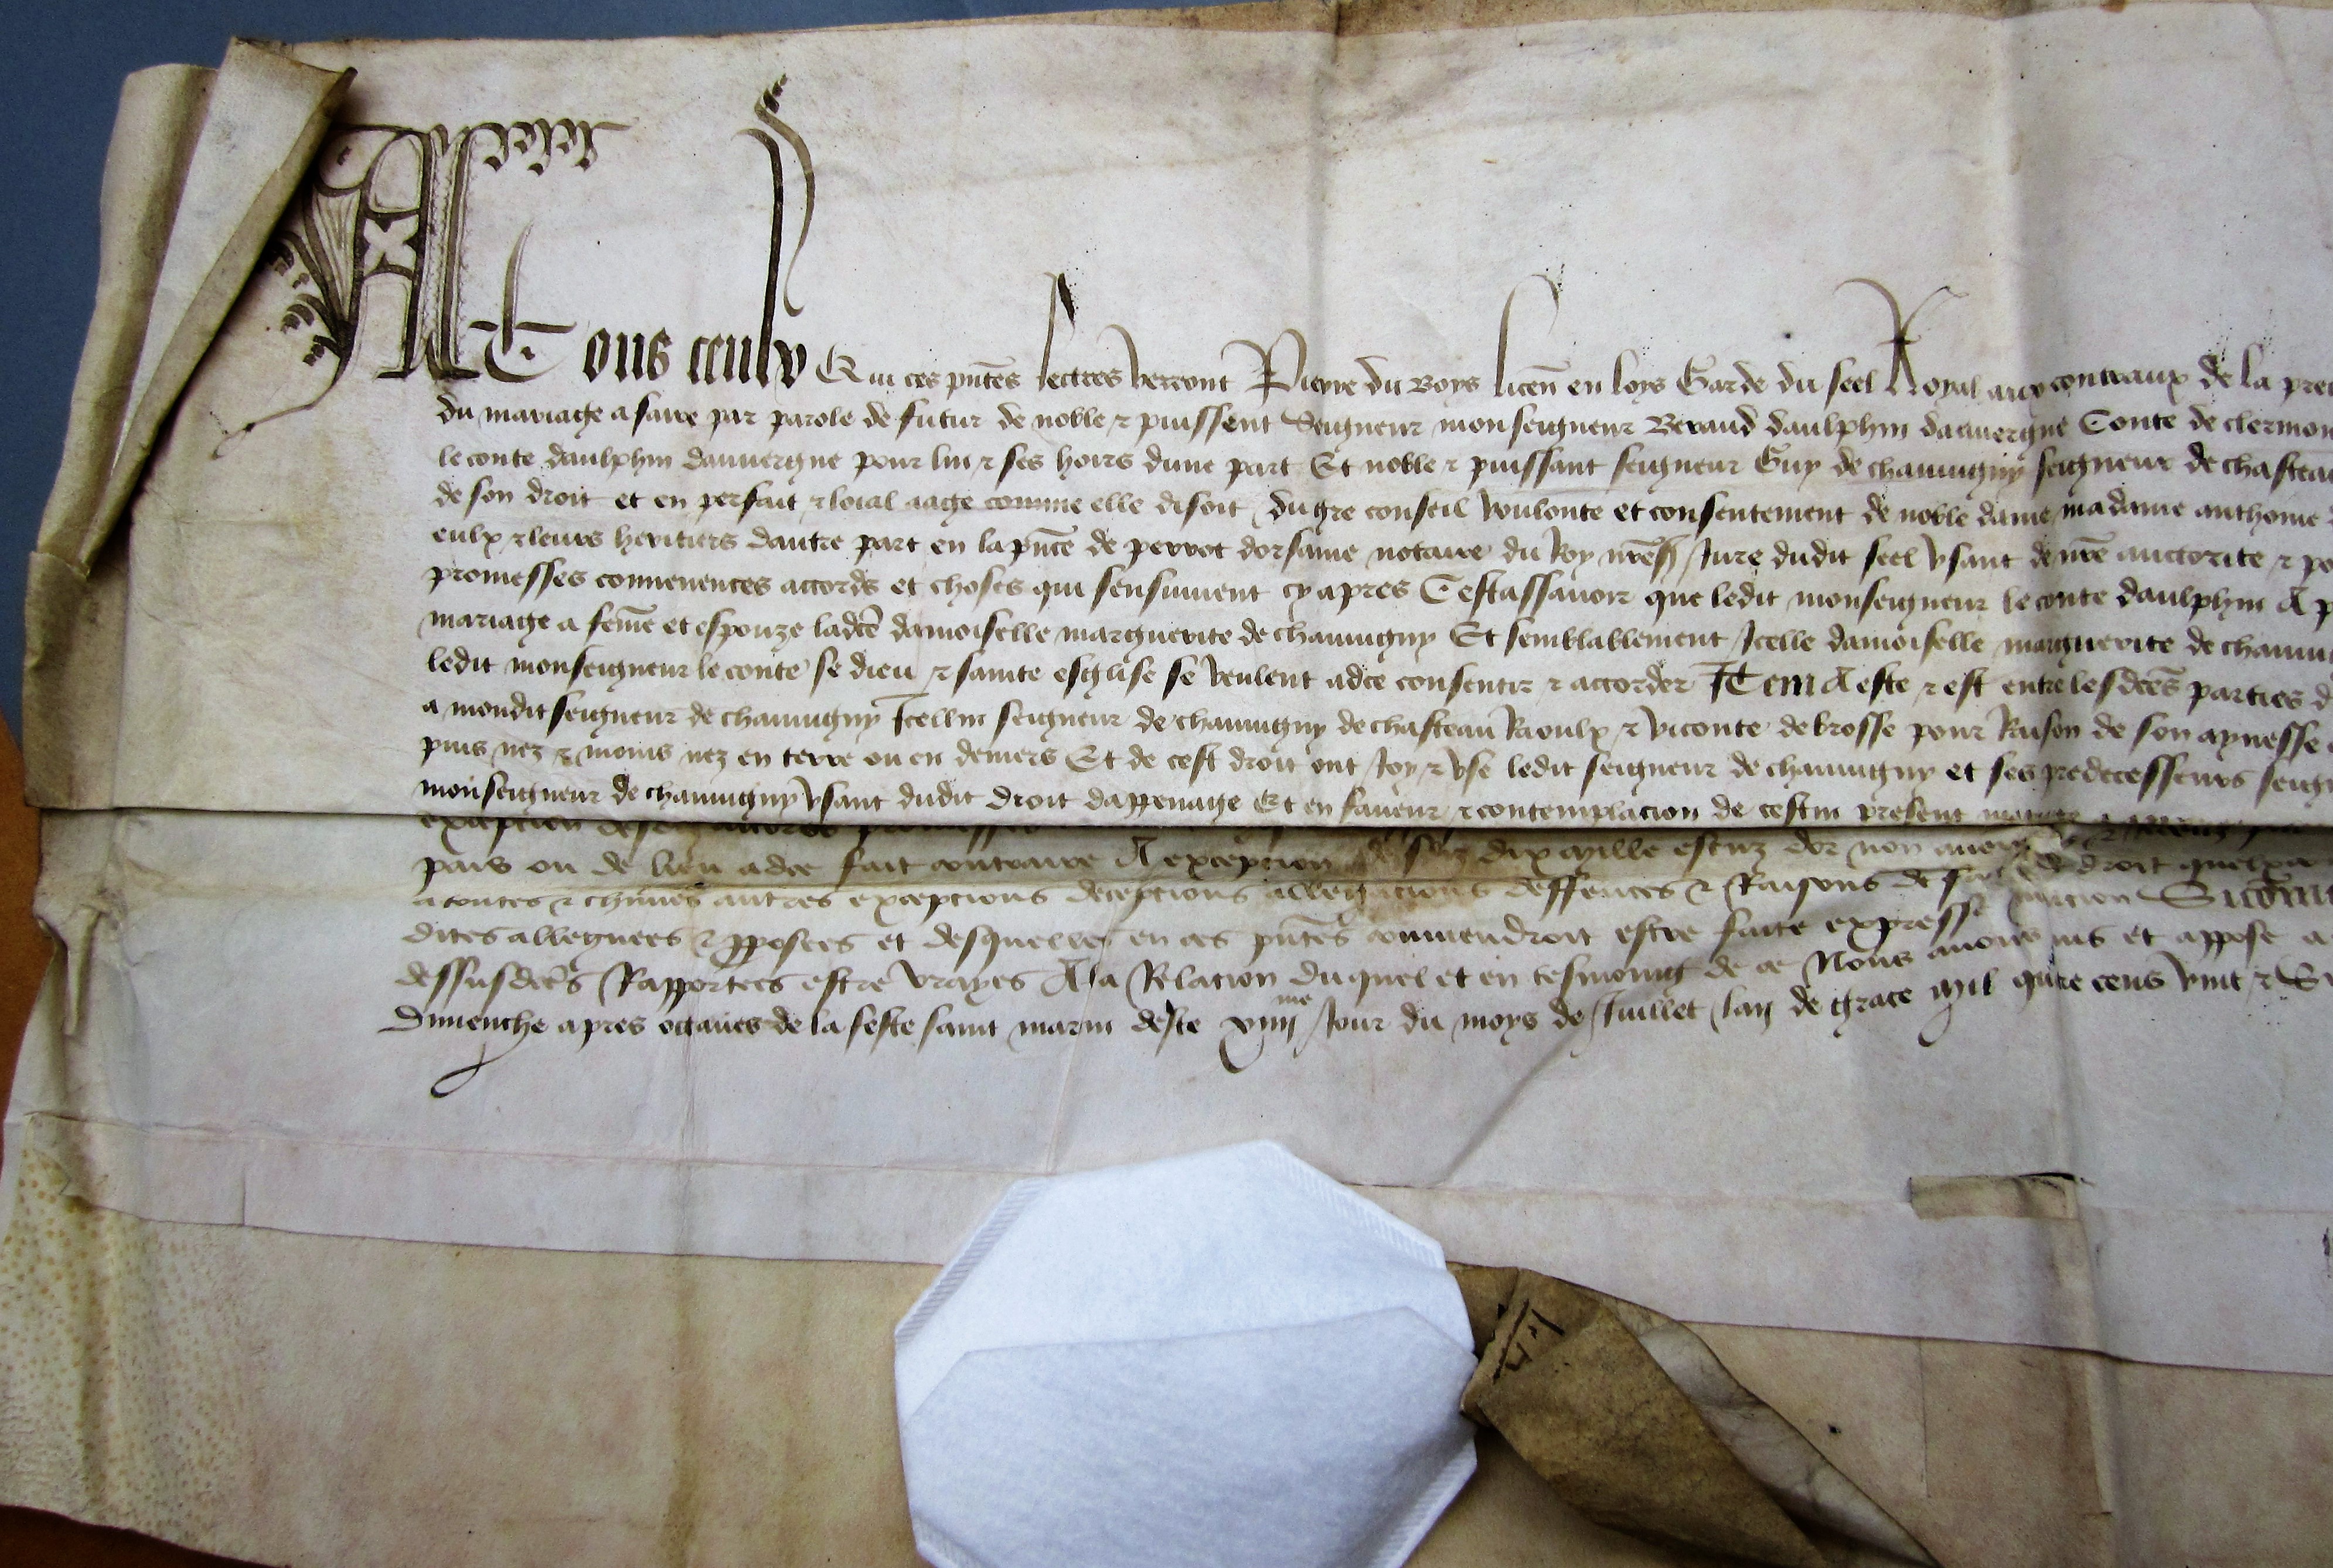 A Tous ceulx Qui ces pntes lettres verront Pierre du Boys licen en loys Garde du seel Royal aux contraux de la
du mariage a faire par parole de futur de noble & puissent Seigneur monseigneur Beraud daulphin dauvergne Conte de
le conte daulphin dauvergne pour lui & ses hoirs dune part Et noble & puissant seigneur Guy de chauvigny seigneur de
de son droit et en perfait & loial aage comme elle disoit du gre conseil voulonte et consentement de noble dame madame anthoine
eulx & leurs heritiers dautre part en la pnce de perrot dorsanne notaire du Roy nre sr Jure dudit seel usant de nre auctorite &
promesses convenences accords et choses qui sensuivent cy apres Cestassavoir que ledit monseigneur le conte daulphin A
mariage a feme et espouze ladce damoiselle marguerite de chauvigny Et semblablement Icelle damoiselle marguerite de
ledit monseigneur le conte se dieu & sainte esglise se veulent adce consentir & accorder Item A este & est entre lesdces parties
a mondit seigneur de chauvigny Icellui seigneur de chauvigny de chasteau Raoulx & viconte de brosse pour Raison de son aynesse
puis nez & moins nez en terre ou en deniers Et de cest droit ont Joy & use ledit seigneur de chauvigny et ses predecesseurs
monseigneur de chauvigny usant dudit droit dappenage Et en faveur & contemplacion de cestui present
exception
pais ou de lieu adce fait contraire A exception dix mille escuz dor non droit
a toutes & chunes autres exceptions deceptions allegacions deffences & Raisons de
dites alleguees & pposees et desquelles en ces pntes conviendroit estre faite expresse
dessusdces Rapportees estre vrayes A la Relacion duquel et en tesmoing de ce Nous avons mis et appose
Dimenche apres octaves de la feste saint marin deste xiiii me Jour du moys de Juillet lan de grace mil qutre cens vint &